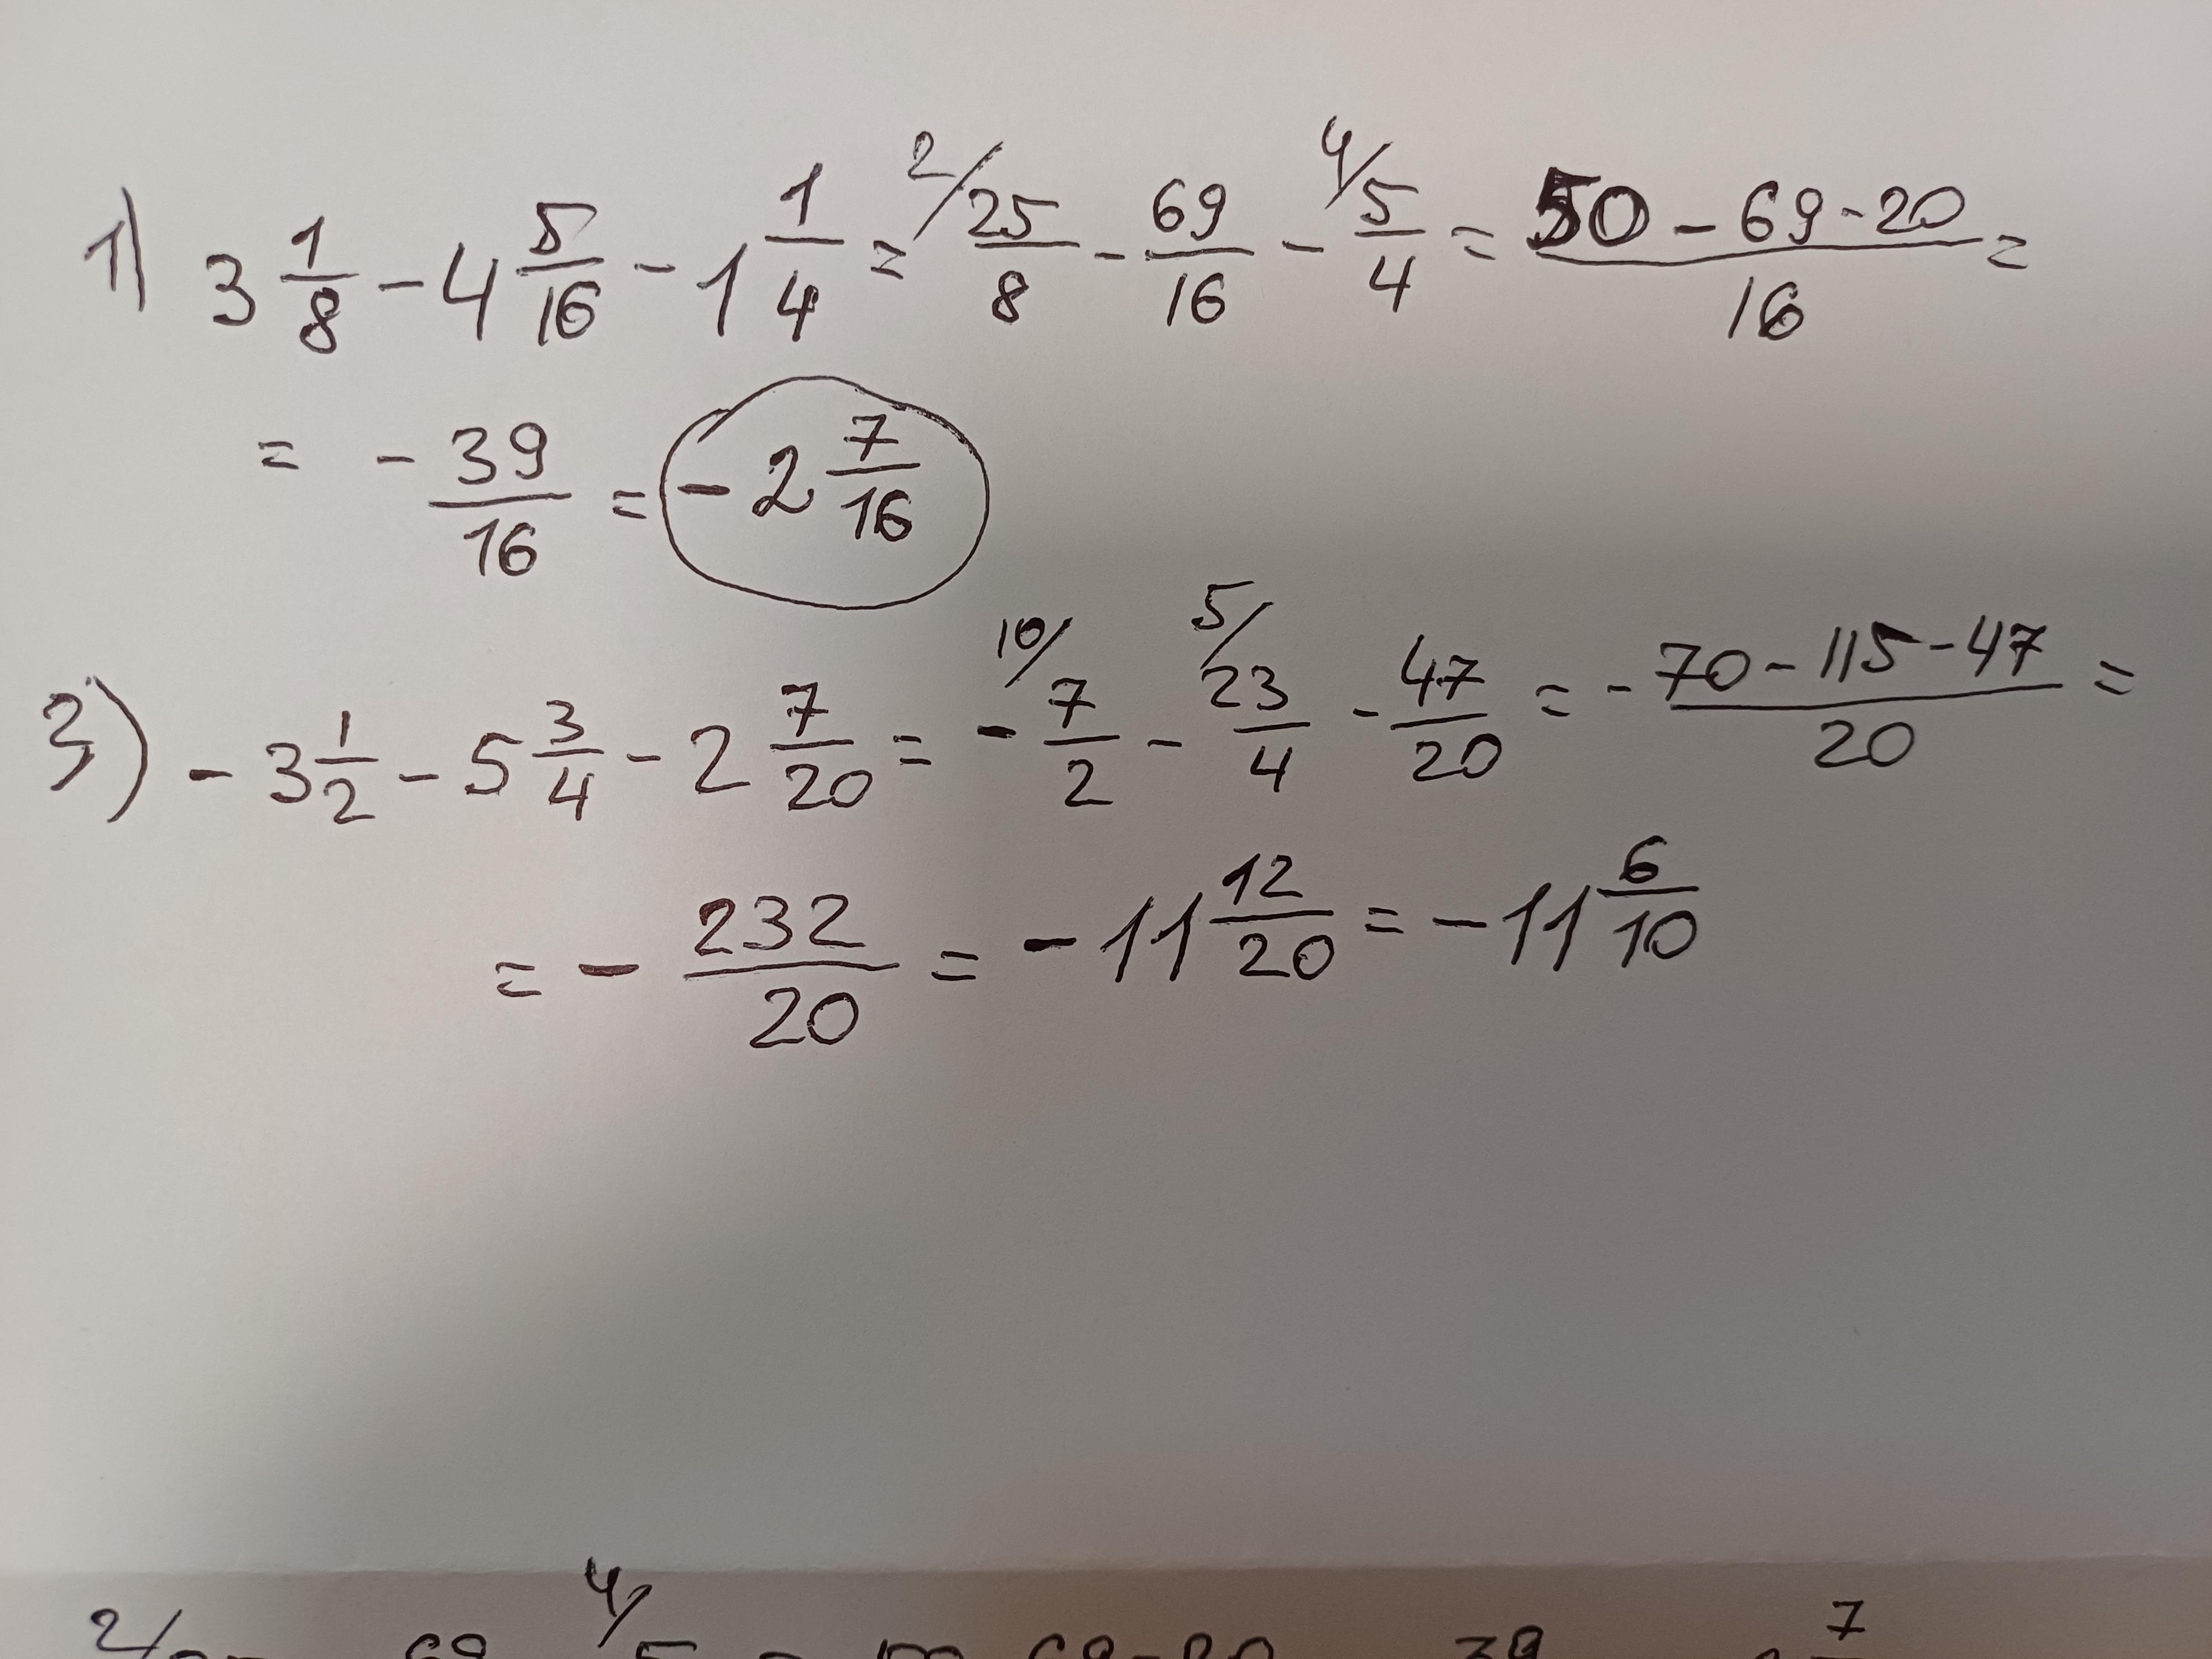 1) 3 1/8 - 4 5/16 - 1 1/4 = 2/ 25/8 - 69/16 - 4/ 5/4 = (50 - 69 - 20)/16 =
= - 39/16 = - 2 7/16
2) - 3 1/2 - 5 3/4 - 2 7/20 = 10/ - 7/2 - 5/ 23/4 - 47/20 = (-70 - 115 - 47)/20 =
= - 232/20 = - 11 12/20 = - 11 6/10
2/ 69 4/ 5 69-20 39 7